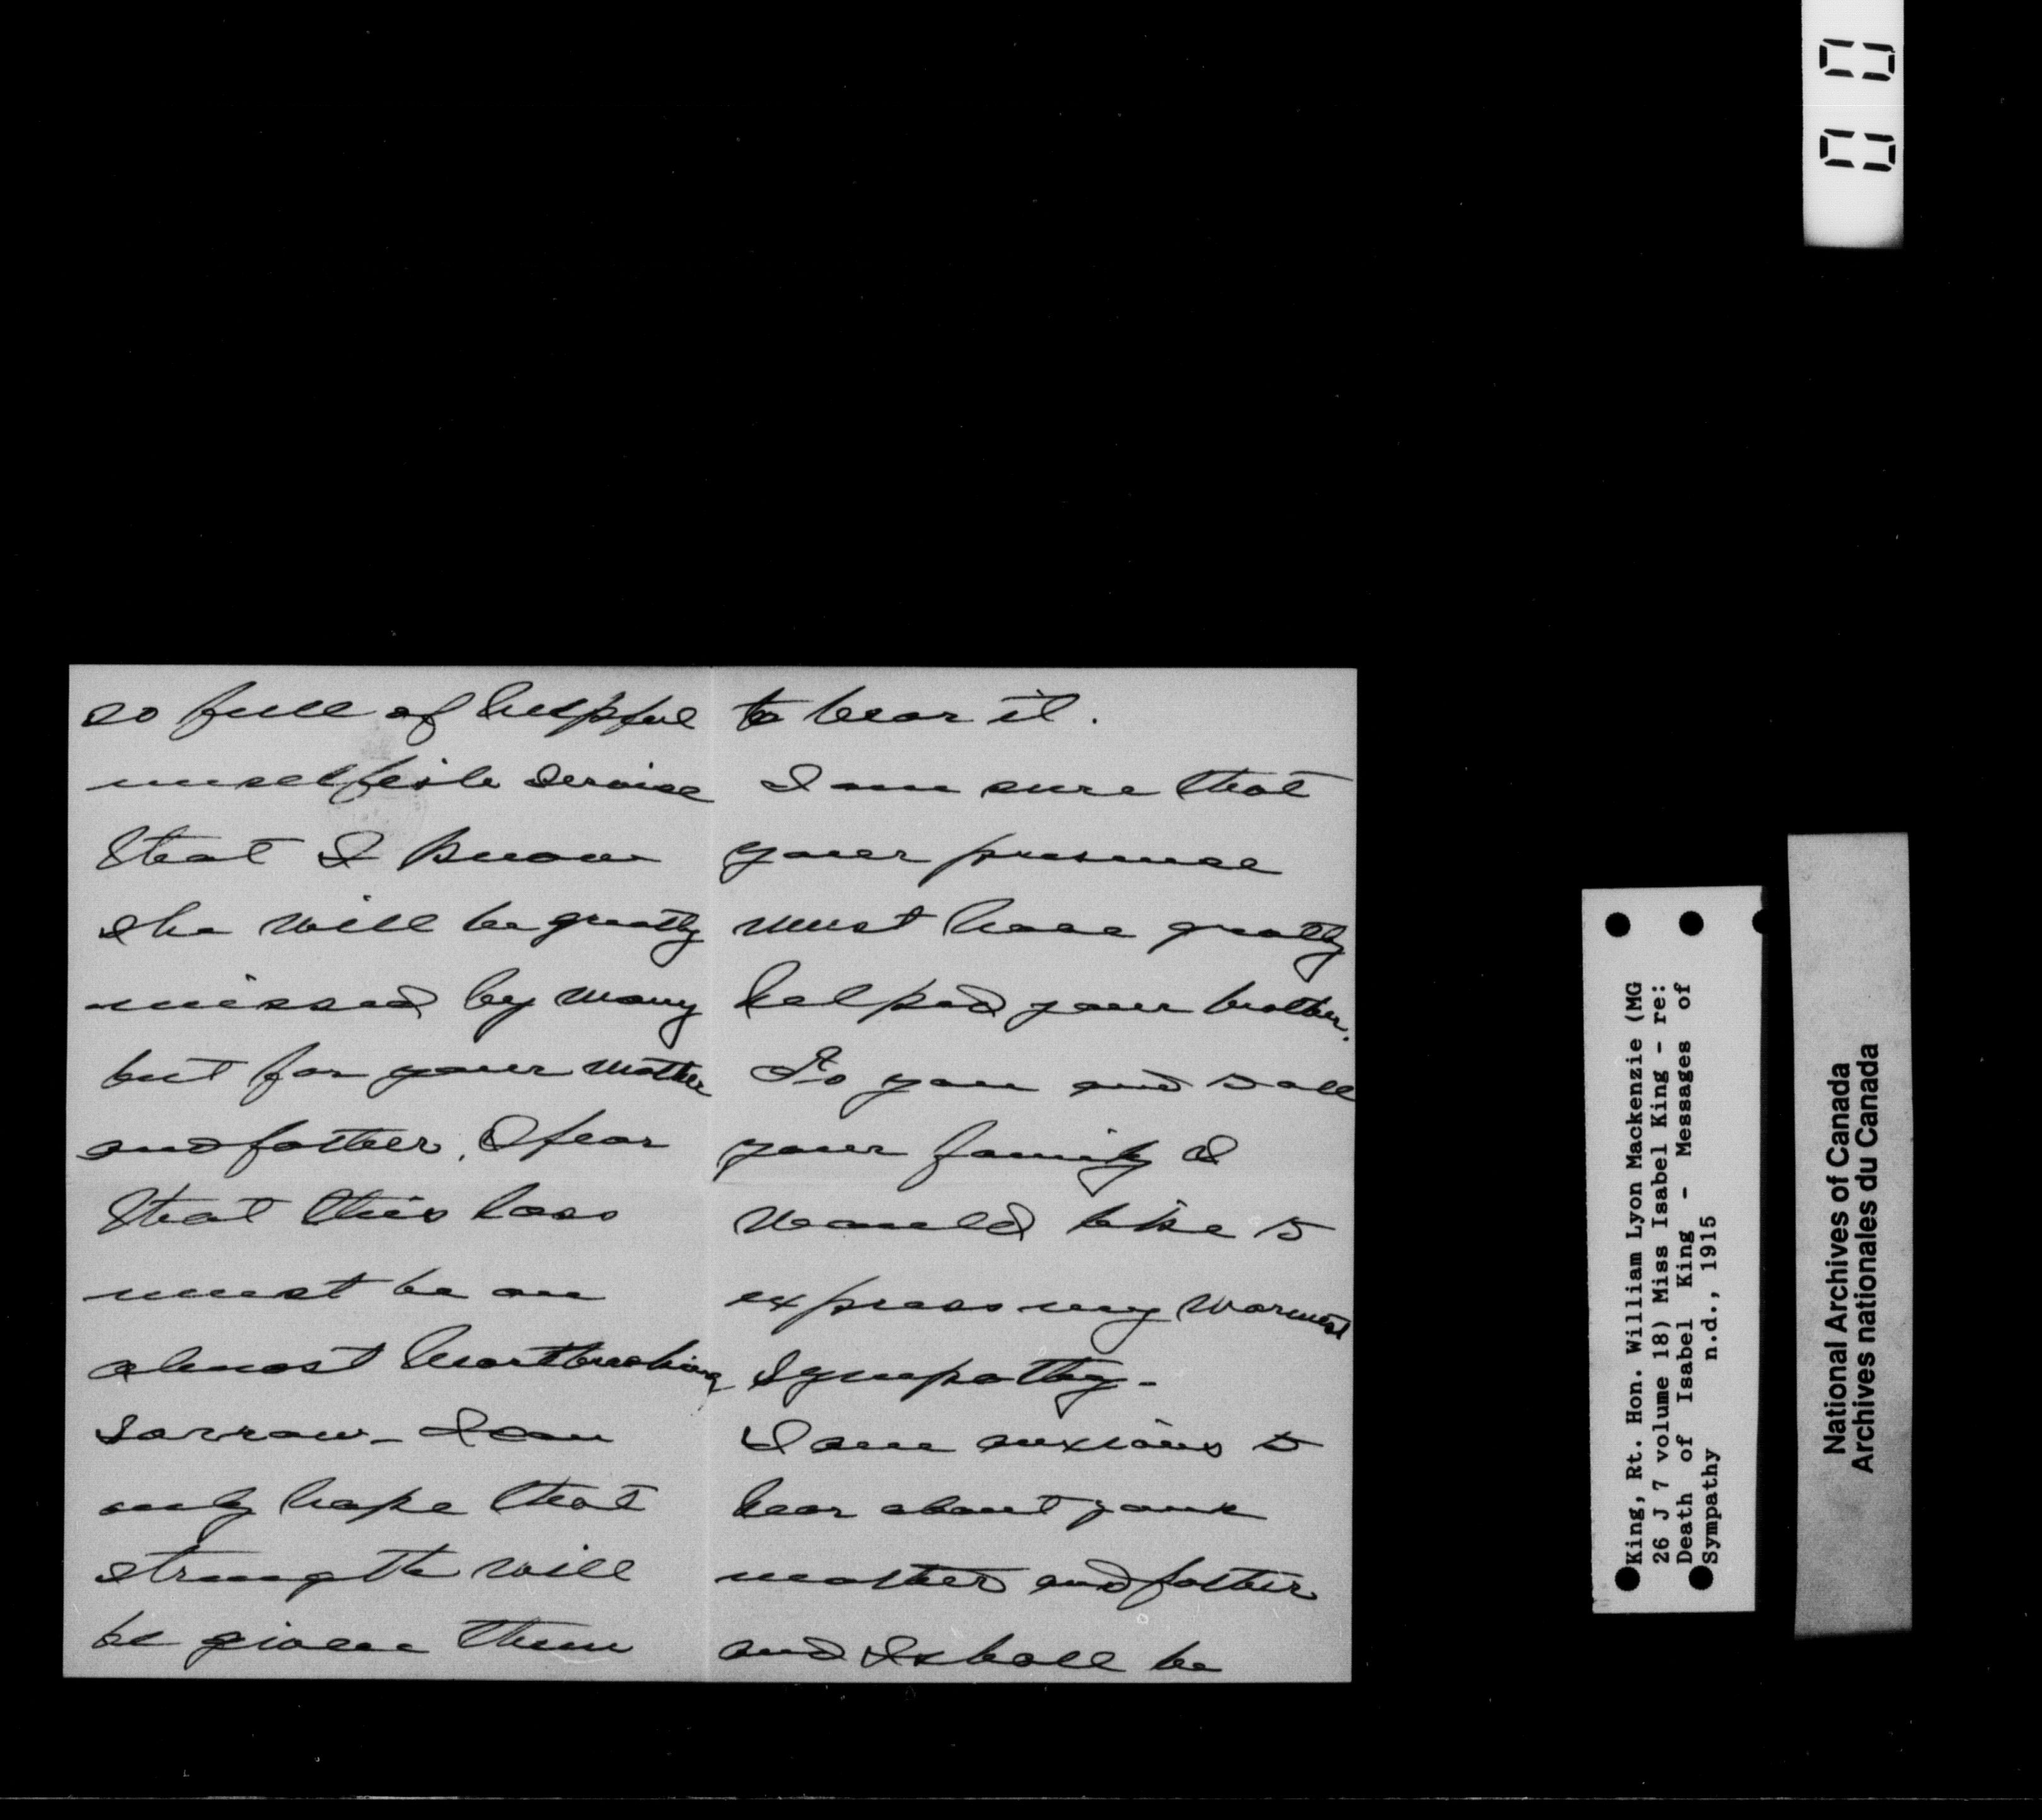 so full of helpful
unselfish service
that I know
she will be greatly
missed by many
but for your mother
and father, I fear
that this loss
must be an
almost heartbreaking
sorrow - I can
only hope that
strength will
be given them
to bear it.
I am sure that
your presence
must have greatly
helped your mother.
To you and to all
your family I
would like to
express my warmest
sympathy -
I am anxious to
hear about your
mother and father
and I shall be
King, Rt. Hon. William Lyon Mackenzie (MG
26 J 7 volume 18) Miss Isabel King - re:
Death of Isabel King - Messages of
Sympathy n.d., 1915
National Archives of Canada
Archives nationales du Canada